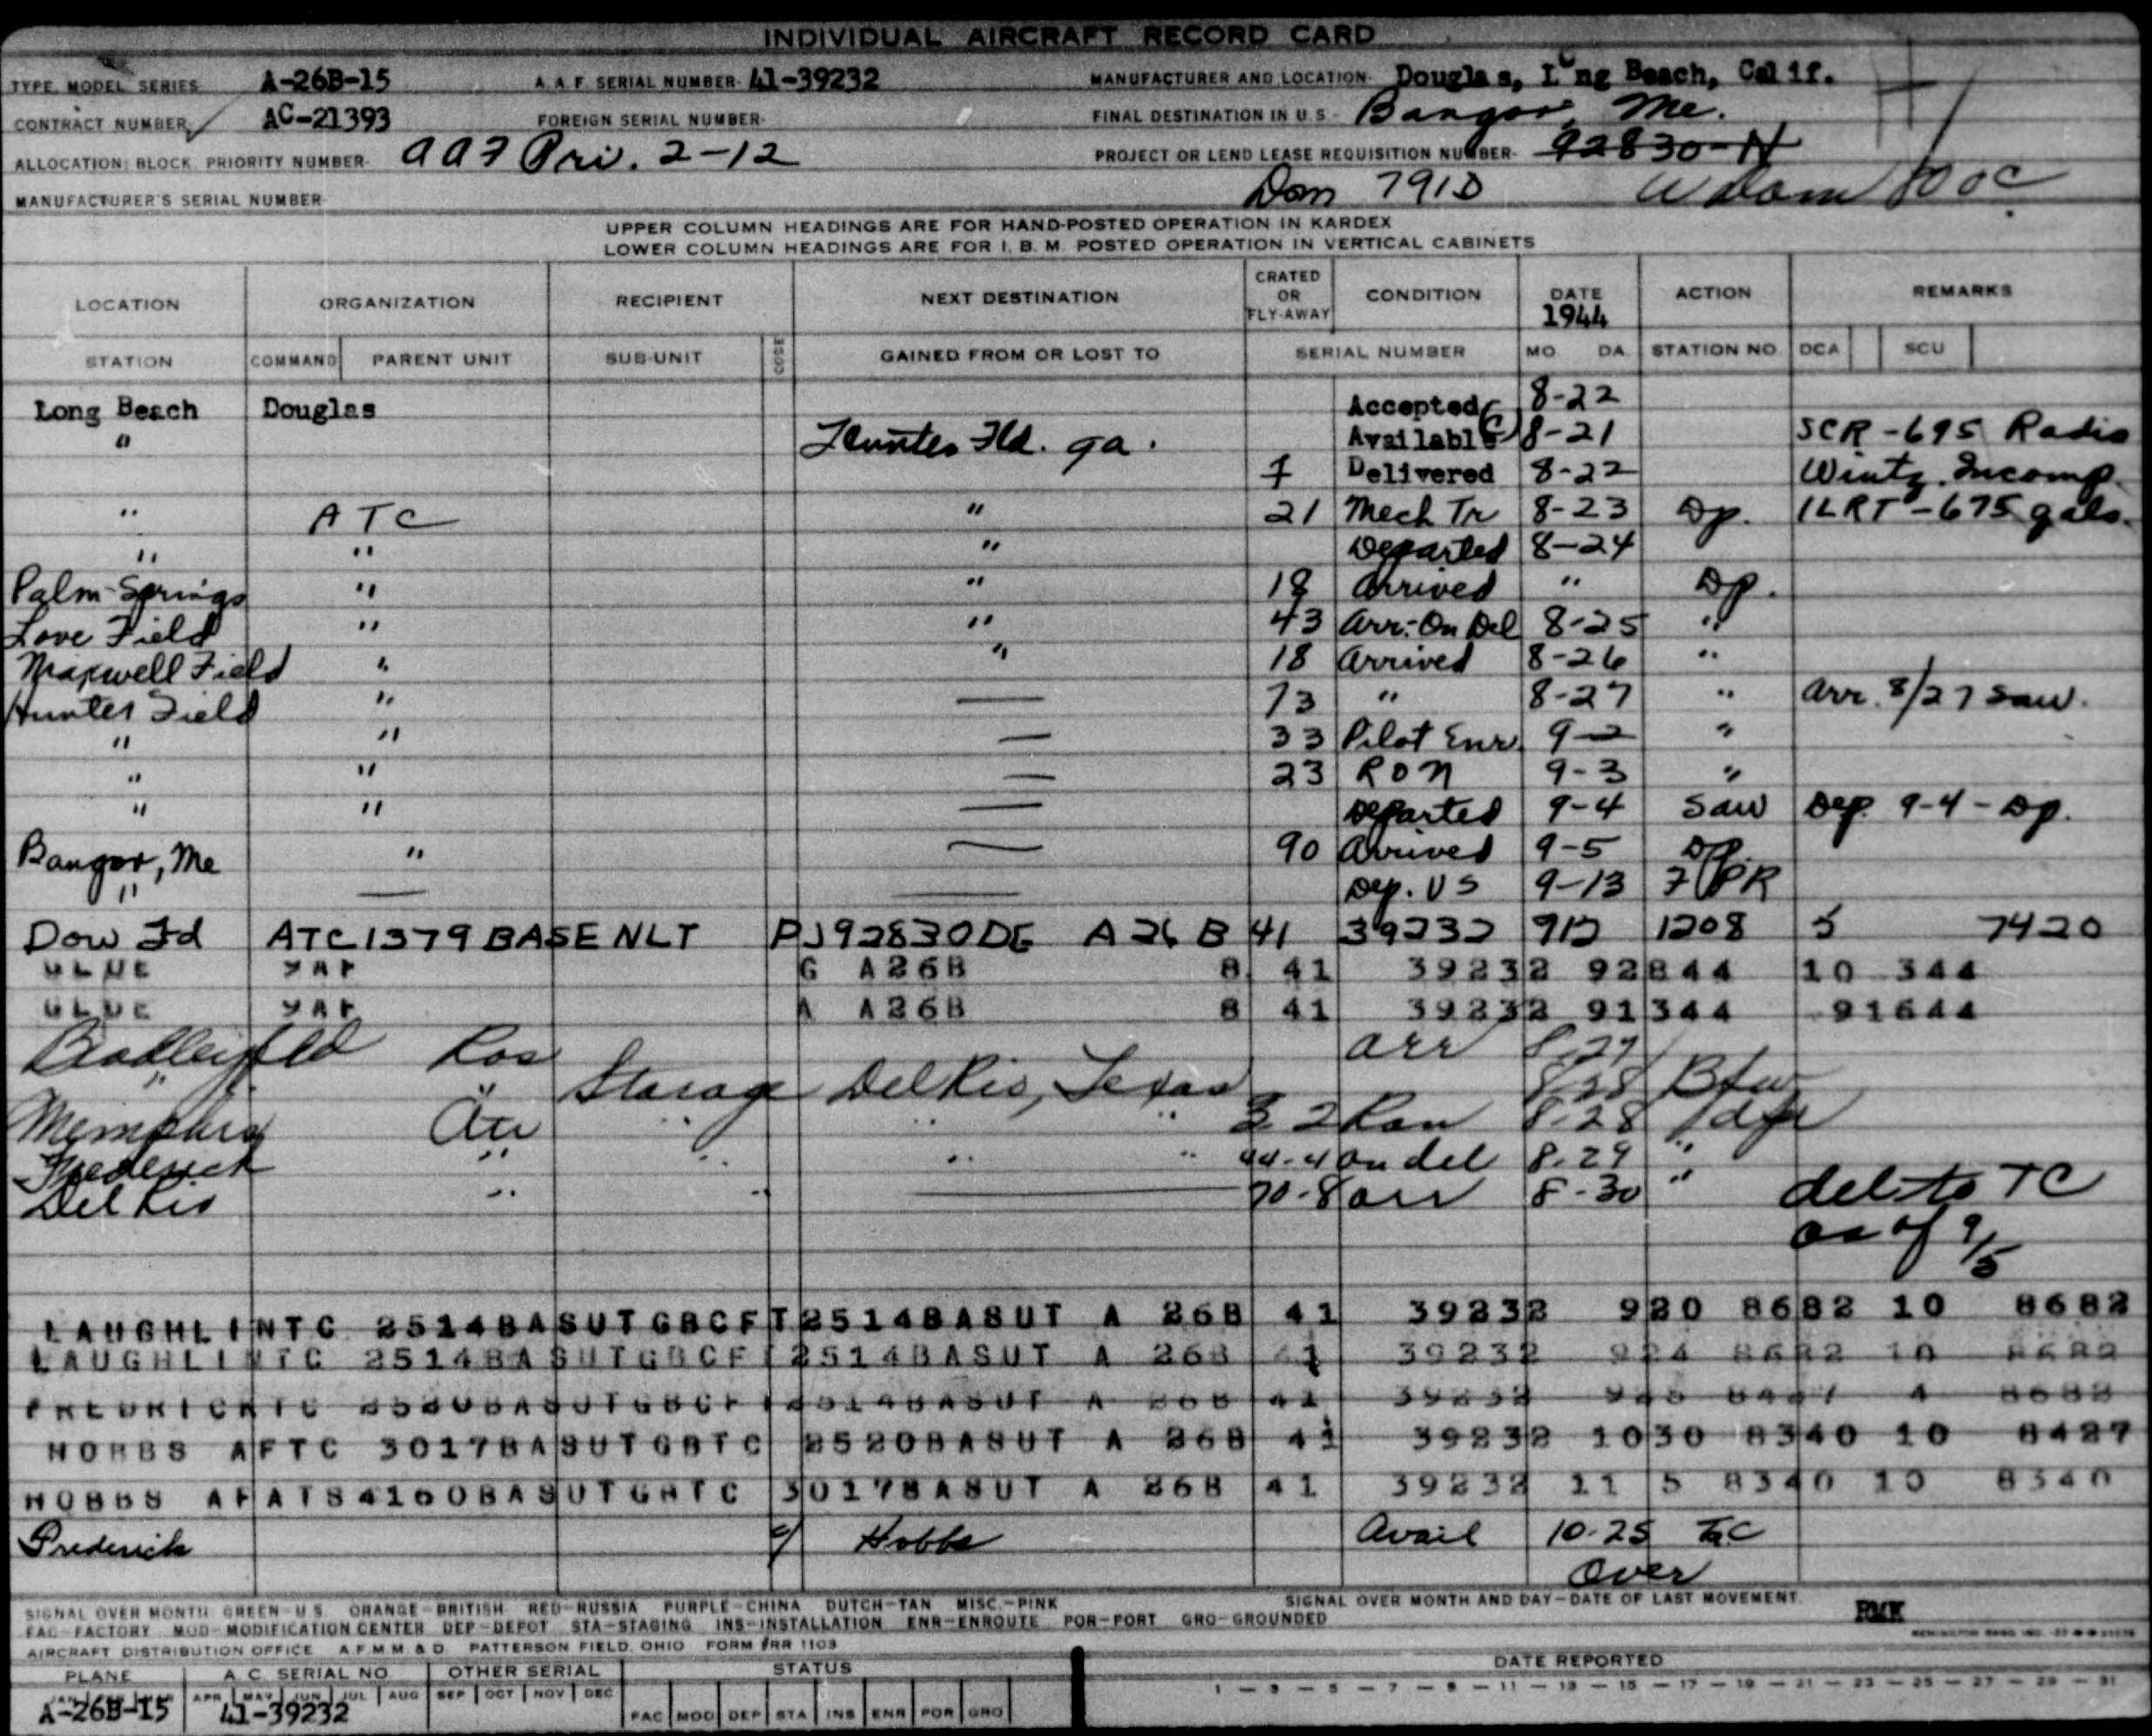 INDIVIDUAL AIRCRAFT RECORD CARD
TYPE, MODEL, SERIES A-26B-15 A.A.F. SERIAL NUMBER- 41-39232 MANUFACTURER AND LOCATION- Douglas, Long Beach, Calif.
CONTRACT NUMBER AC-21393 FOREIGN SERIAL NUMBER- FINAL DESTINATION IN U.S.- Bangor, Me.
ALLOCATION; BLOCK, PRIORITY NUMBER- AAF Pri. 2-12 PROJECT OR LEND LEASE REQUISITION NUMBER- 92830-N
MANUFACTURER'S SERIAL NUMBER- Dom 791D
UPPER COLUMN HEADINGS ARE FOR HAND-POSTED OPERATION IN KARDEX
LOWER COLUMN HEADINGS ARE FOR I.B.M. POSTED OPERATION IN VERTICAL CABINETS
LOCATION ORGANIZATION RECIPIENT NEXT DESTINATION CRATED OR FLY-AWAY CONDITION DATE 1944 ACTION REMARKS
STATION COMMAND PARENT UNIT SUB-UNIT CODE GAINED FROM OR LOST TO SERIAL NUMBER MO. DA. STATION NO. DCA SCU
Long Beach Douglas Accepted 8-22
" Hunter Fld. Ga. Available 8-21 SCR-695 Radio
7 Delivered 8-22 Wintz. Incomp.
" ATC " 21 Mech Tr 8-23 Dp. 1LRT-675 gals.
" " " Departed 8-24
Palm Springs " " 18 Arrived " Dp.
Love Field " " 43 Arr.-On Del 8-25 "
Maxwell Field " " 18 Arrived 8-26 "
Hunter Field " — 73 " 8-27 " Arr. 8/27 Saw.
" " — 33 Pilot Enr. 9-2 "
" " — 23 RON 9-3 "
" " — Departed 9-4 Saw Dep. 9-4-Dp.
Bangor, Me " — 90 Arrived 9-5 Dp
" — — Dep. US 9-13 PR
Dow Fd ATC 1379 BASE NLT PJ92830DG A 26 B 41 39232 912 1208 5 7420
GLUE 9AF G A26B 8 41 39232 92844 10 344
GLUE 9AF A A26B 8 41 39232 91344 91644
Bradley fld Ros arr 8-27
" " Storage Del Rio, Texas 8-28
Memphis " " 2 Ron 8-28
Frederick " " " " 44-4 on del 8-29 "
Del Rio " " — 70-8 arr 8-30 " del to TC
as of 9/5
LAUGHLINTC 2514BASUTGBCFT2514BASUT A 26B 41 39232 920 8682 10 8682
LAUGHLINTC 2514BASUTGBCFT2514BASUT A 26B 41 39232 924 8682 10 8682
FREDRICKTC 2520BASUTGBCFT2514BASUT A 26B 41 39232 8427 4 8682
HOBBS AFTC 3017BASUTGBTC 2520BASUT A 26B 41 39232 1030 8340 10 8427
HOBBS AFATS4160BASUTGBTC 3017BASUT A 26B 41 39232 11 5 8340 10 8340
Frederick Hobbs Avail 10-25
Over
SIGNAL OVER MONTH: GREEN-U.S. ORANGE-BRITISH RED-RUSSIA PURPLE-CHINA DUTCH-TAN MISC.-PINK SIGNAL OVER MONTH AND DAY-DATE OF LAST MOVEMENT.
FAC-FACTORY MOD-MODIFICATION CENTER DEP-DEPOT STA-STAGING INS-INSTALLATION ENR-ENROUTE POR-PORT GRO-GROUNDED RMK
AIRCRAFT DISTRIBUTION OFFICE A.F.M.M.&D. PATTERSON FIELD, OHIO FORM #RR 1103
PLANE A.C. SERIAL NO. OTHER SERIAL STATUS DATE REPORTED
APR MAY JUN JUL AUG SEP OCT NOV DEC 1 — 3 — 5 — 7 — 9 — 11 — 13 — 15 — 17 — 19 — 21 — 23 — 25 — 27 — 29 — 31
A-26B-15 41-39232 FAC MOD DEP STA INS ENR POR GRO